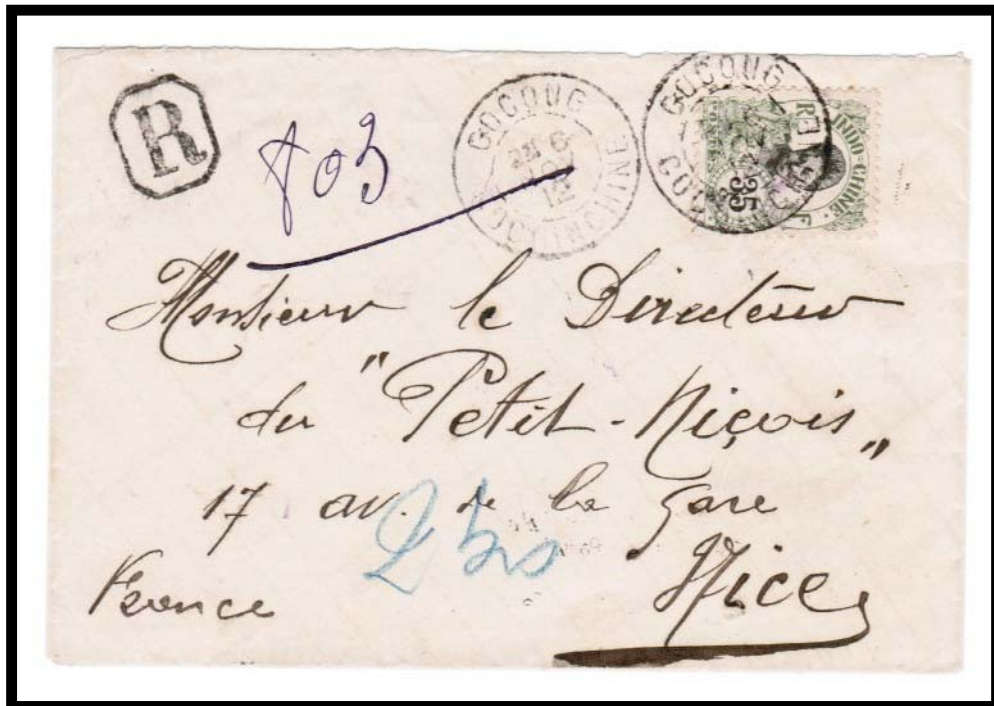 R
803
GOCOUG
6
12
COCHINCHINE
GOCOUG
INDO-CHINE
RF
35
Monsieur le Directeur
du "Petit-Niçois"
17 av. de la Gare
Nice
France